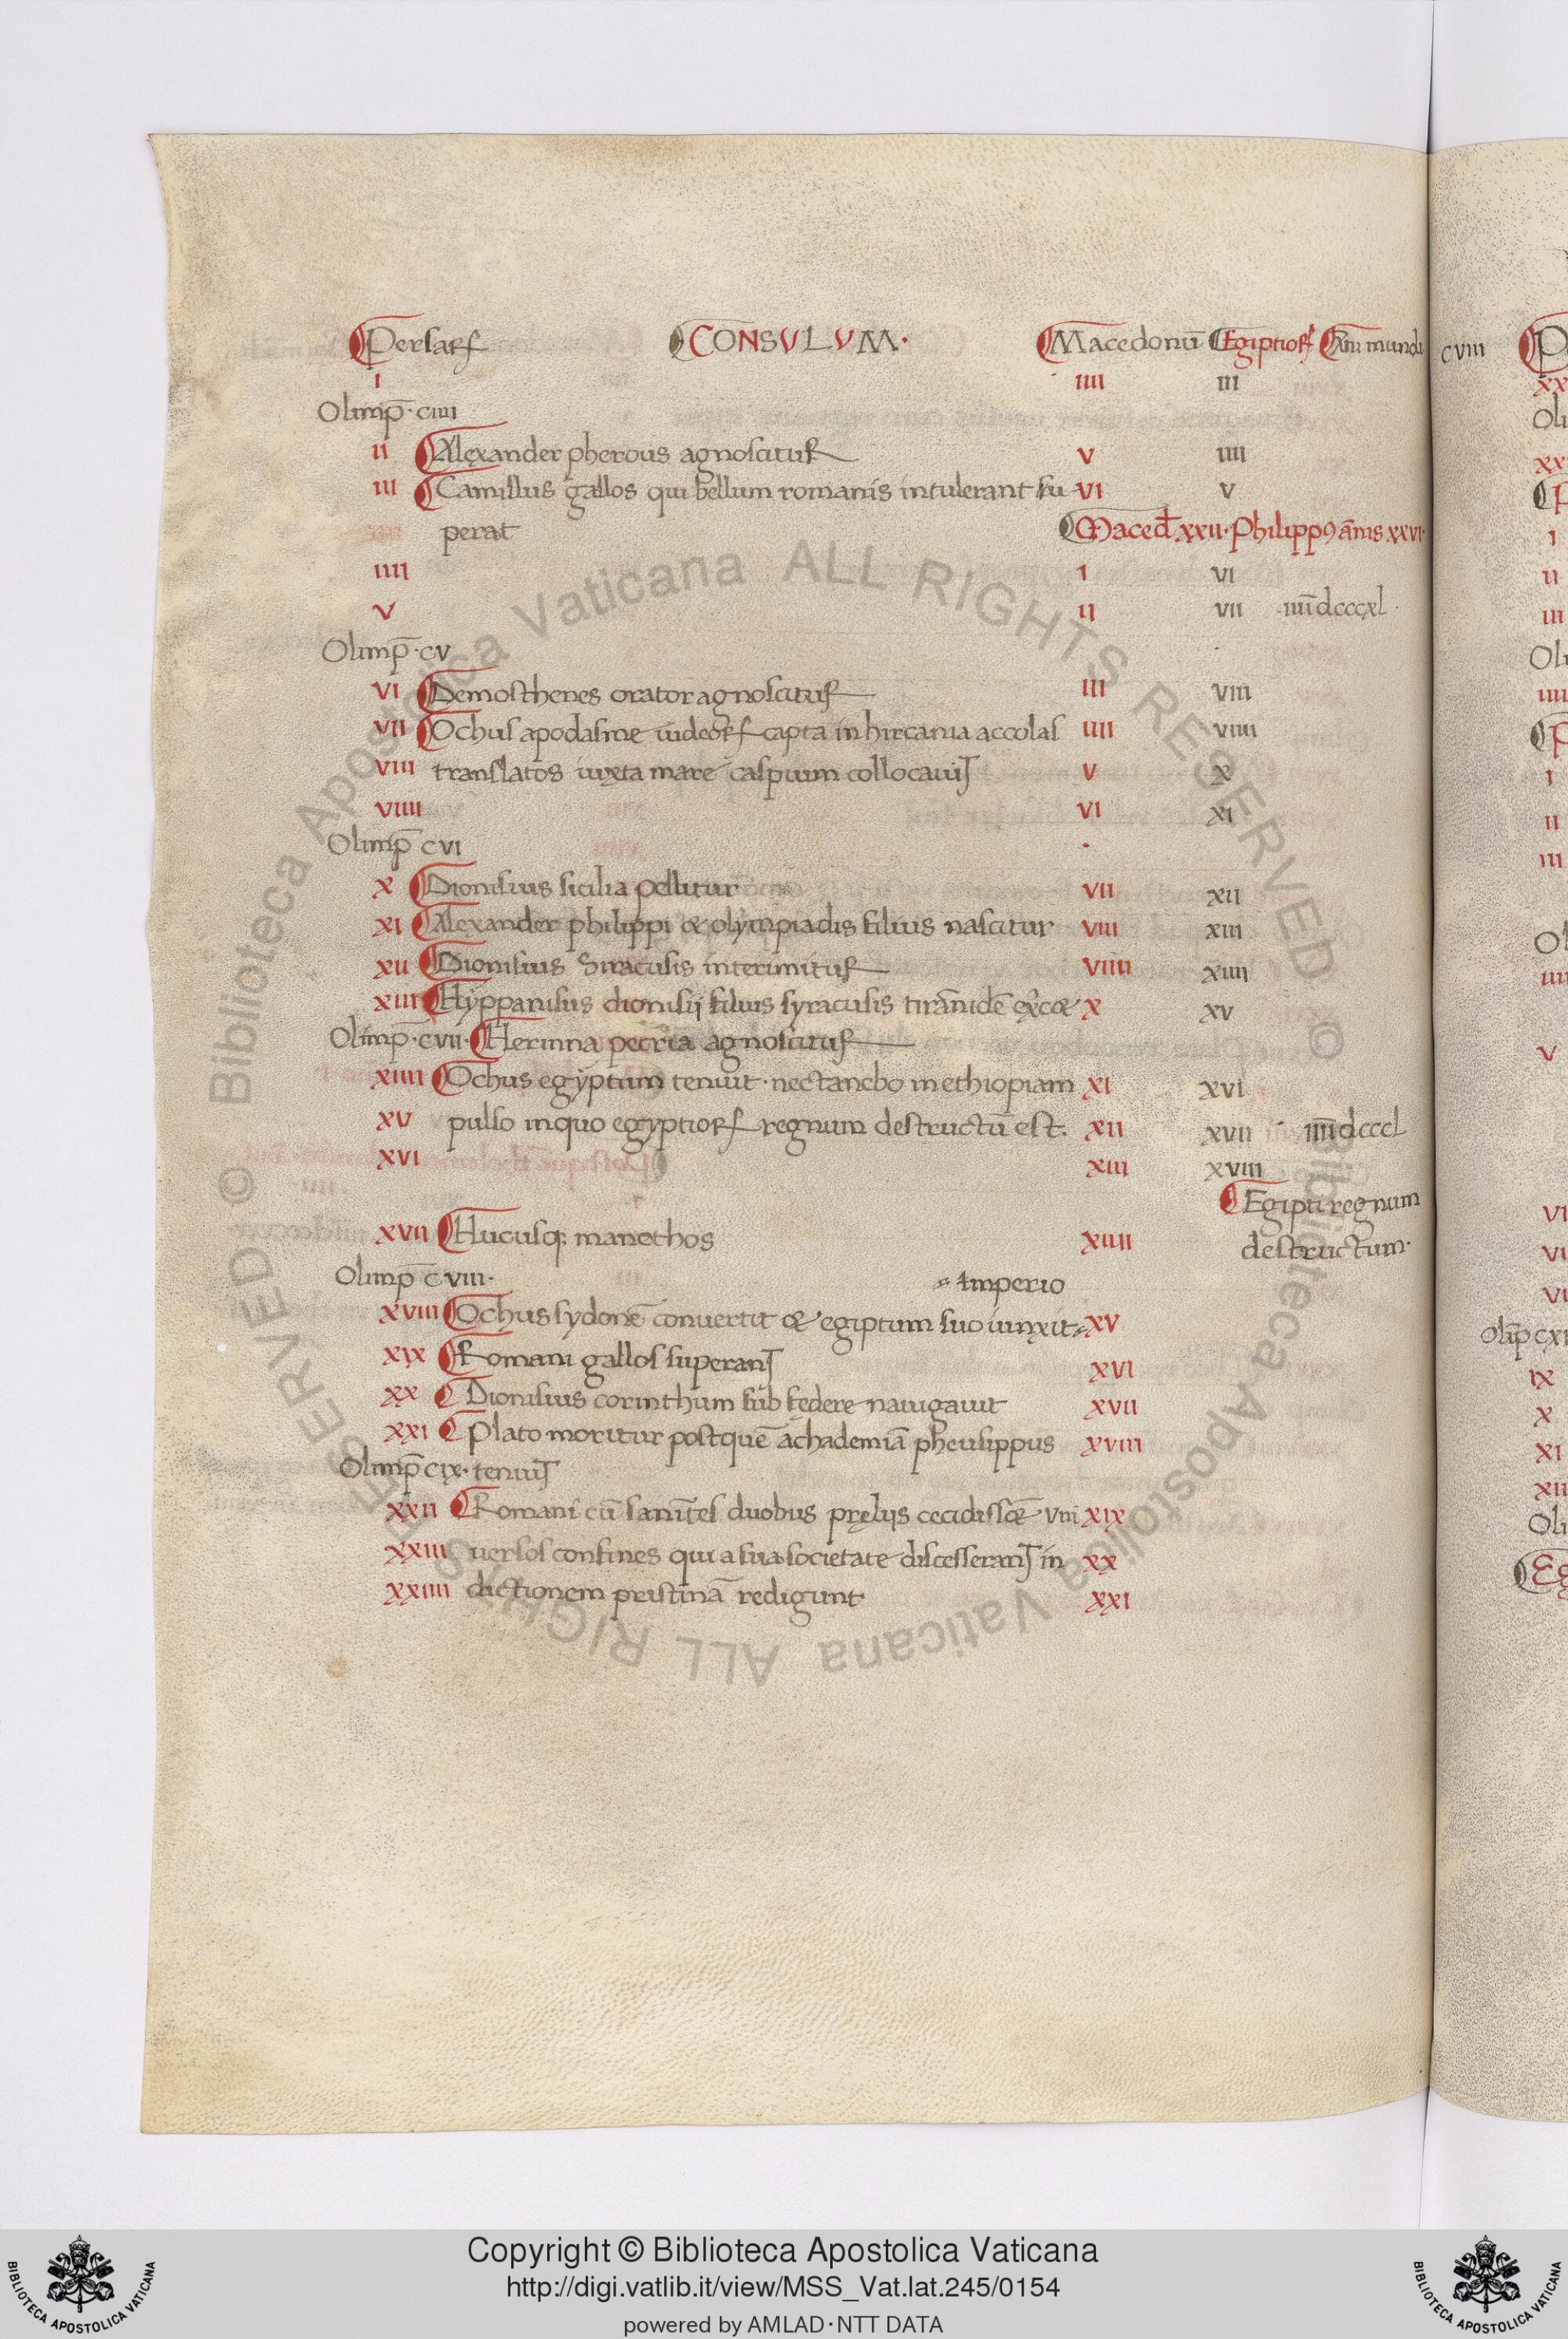 Persaꝝ CONSULUM· Macedonū Egiptioꝝ Añi mundi cviii
i iiii iii
Olimp̄· ciiii
ii Alexander pherous agnoscitur v iiii
iii Camillus gallos qui bellum romanis intulerant su vi v
perat Maced xxii· Philippꝰ ānis xxvi·
iiii i vi
v ii vii ·iiii̅dcccxl·
Olimp̄·cv
vi Demosthenes orator agnoscitur iii viii
vii Ochus apodasme iudeoꝝ capta in hircania accolas iiii viiii
viii translatos iuxta mare caspium collocauit v x
viiii vi xi
Olimp̄ cvi
x Dionisius sicilia pellitur vii xii
xi Alexander philippi & olympiadis filius nascitur viii xiii
xii Dionisius Siracusis interimitur viiii xiiii
xiii Hypparisus dionisij filius syracusis tirānidē ex̾c& x xv
Olimp̄·cvii· Herinna poetria agnoscitur
xiiii Ochus egyptum tenuit· nectanebo in ethiopiam xi xvi
xv pulso in quo egyptioꝝ regnum destructū est. xii xvii iiii̅dcccl
xvi xiii xviii
Egipti regnum
xvii Hucusq; manethos xiiii destructum·
Olimp̄ cviii· imperio
xviii Ochus sydonē conuertit & egiptum suo iunxit xv
xix Romani gallos superant xvi
xx Dionisius corinthum sub federe nauigauit xvii
xxi Plato moritur post quē achademiā pheusippus xviii
Olimp̄ cix· tenuit
xxii Romani cū sanites duobus pręlijs cecidiss& vni xix
xxiii uersos confines qui a sua societate discesserant in xx
xxiiii dictionem pristinā redigunt xxi
Copyright © Biblioteca Apostolica Vaticana
http://digi.vatlib.it/view/MSS_Vat.lat.245/0154
powered by AMLAD·NTT DATA